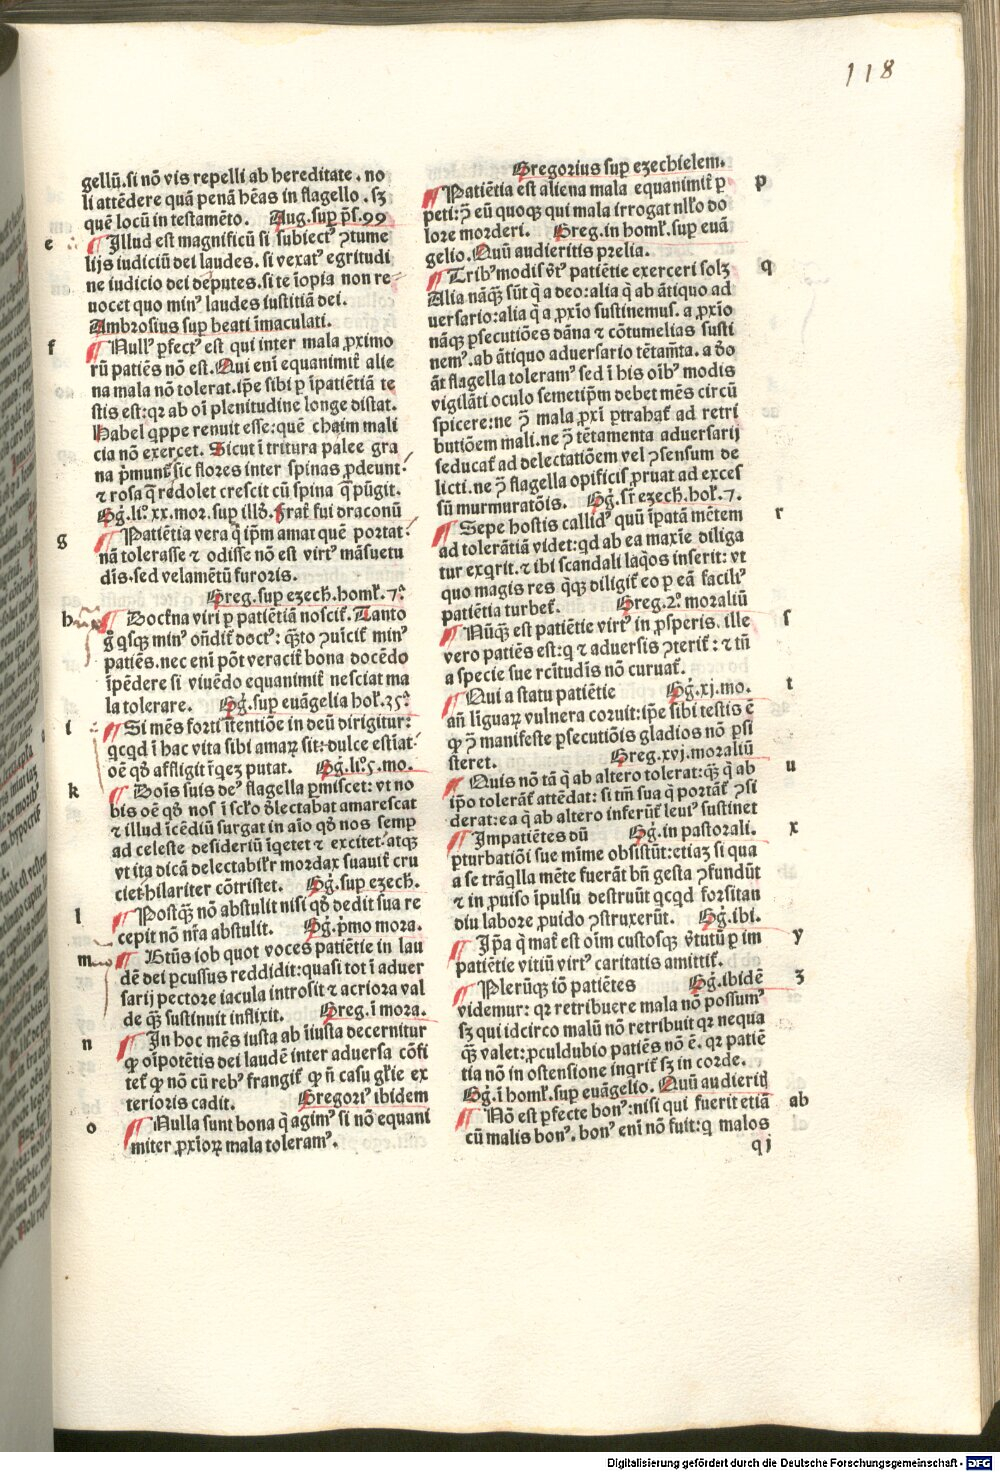 118
gellū.si nō vis repelli ab hereditate . no
li attēdere quā penā hēas in flagello . sꝫ
quē locū in testamēto. Aug.suꝑ p̄s.99
e Illud est magnificū si subiectꝰ ꝯtume
lijs iudiciū dei laudes. si vexatꝰ egritudi
ne iudicio dei deputes.si te īopia non re
uocet quo minꝰ laudes iustitiā dei.
Ambrosius suꝑ beati īmaculati.
f Nullꝰ ꝑfectꝰ est qui inter mala ꝓximo
rū patiēs nō est. Qui eni equanimiṫ alie
na mala nō tolerat.ip̄e sibi ꝑ īpatiētiā te
stis est:qꝛ ab oī plenitudine longe distat.
Habel qͥppe renuit esse:quē chaim mali
cia nō exercet. Sicut ī tritura palee gra
na p̄munt.sic flores inter spinas ꝓdeunt.
⁊ rosa q̄ redolet crescit cū spina q̄ pūgit.
Gġ.li.̊ xx.mor.suꝑ illḋ.frat̄ fui draconū
g Patiētia vera q̄ ip̄m amat quē portat.
nā tolerasse ⁊ odisse nō est virtꝰ māsuetu
dīs.sed velamētū furoris.
Greg.suꝑ ezech.homł.7.̊
h Doctīna viri ꝑ patiētiā noscit̄. Tanto
g̊ qͥsqꝫ minꝰ on̄dit̄ doctꝰ: qͣto ꝯuīcit̄ minꝰ
patiēs.nec eni pōt veraciṫ bona docēdo
īpēdere si viuēdo equanimiṫ nesciat ma
la tolerare. Gġ.suꝑ euāgelia hoł.35.̊
i Si mēs forti ītentiōe in deū dirigitur:
qͥcqͥd ī hac vita sibi amaꝝ sit: dulce estiat.
oē qḋ affligit īqͥeꝫ putat. Gġ.li.̊5.mo.
k Boīs suis deꝰ flagella ꝑmiscet: vt no
bis oē qḋ nos ī scło ḋlectabat amarescat
⁊ illud īcēdiū surgat in aīo qḋ nos semꝑ
ad celeste desideriū īqͥetet ⁊ excitet.atqꝫ
vt ita dicā delectabiłr mordax suauiṫ cru
ciet.hilariter cōtristet. Gġ.suꝑ ezech.
l Postqꝫ̄ nō abstulit nisi qḋ dedit sua re
cepit nō nr̄a abstulit. Gġ.pͥmo mora.
m Btūs iob quot voces patiētie in lau
dē dei ꝑcussus reddidit:quasi tot ī aduer
sarij pectore iacula introsit ⁊ acriora val
de qꝫ̄ sustinuit inflixit. Greg.ī mora.
n In hoc mēs iusta ab īiusta decernitur
ꝙ oīpotētis dei laudē inter aduersa cōfi
tet̄ ꝙ nō cū rebꝰ frangit̄ ꝙ n̄ casu głie ex
terioris cadit. Gregoriꝰ ibidem
o Nulla sunt bona q̄ agimꝰ si nō equani
miter ꝓxīoꝝ mala toleramꝰ.
Gregorius suꝑ ezechielem.
p Patiētia est aliena mala equanimiṫ ꝑ
peti:ꝯ̄ eū quoqꝫ qui mala irrogat nłło do
lore morderi. Greg.in homł.suꝑ euā
gelio.Quū audieritis prelia.
q Tribꝰ modis v̇tꝰ patiētie exerceri solꝫ
Alia nāqꝫ sūt q̄ a deo:alia q̄ ab ātiquo ad
uersario:alia q̄ a ꝓxīo sustinemus. a ꝓxīo
nāqꝫ ꝑsecutiōes dāna ⁊ cōtumelias susti
nemꝰ.ab ātiquo aduersario tētam̄ta. a ḋo
āt flagella toleramꝰ sed ī his oīb̄ꝰ modis
vigilāti oculo semetip̄m debet mēs circū
spicere:ne ꝯ̄ mala ꝓxī ꝑtrahat̄ ad retri
butiōem mali.ne ꝯ̄ tētamenta aduersarij
seducat̄ ad delectatiōem vel ꝯsensum de
licti.ne ꝯ̄ flagella opificis ꝓruat ad exces
sū murmuratōis. Gġ.sꝛ̄ ezech.hoł.7.
r Sepe hostis callidꝰ quū īpatā mētem
ad tolerātiā videt:qͦd ab ea maxīe diliga
tur exqͥrit.⁊ ibi scandali laqͦos inserit: vt
quo magis res qͣqꝫ diligit̄ eo ꝑ eā faciliꝰ
patiētia turbet̄. Greg.2.̊ moraliū
s Nūqꝫ̄ est patiētie virtꝰ in ꝓsperis. ille
vero patiēs est:qͥ ⁊ aduersis ꝯterit̄: ⁊ tn̄
a specie sue rc̄itudīs nō curuat̄.
t Qui a statu patiētie Gġ.xj.mo.
an̄ līguaꝝ vulnera coruit:ip̄e sibi testis ē
ꝙ ꝯ̄ manifeste ꝑsecutiōis gladios nō ꝑsi
steret. Greg.xvj.moraliū
u Quis nō tā q̄ ab altero tolerat:qꝫ̄ q̄ ab
ip̄o tolerāt̄ attēdat: si tm̄ sua q̄ portāt̄ ꝯsi
derat:ea q̄ ab altero inferūt̄ leuiꝰ sustinet
x Impatiētes dū Gġ.in pastorali.
ꝑturbatiōi sue mīme obsistūt:etiaꝫ si qua
a se trāqͥlla mēte fuerāt bn̄ gesta ꝯfundūt
⁊ in ꝓuiso īpulsu destruūt qͥcqͥd forsitan
diu labore ꝓuido ꝯstruxerūt. Gġ.ibi.
y Ip̄a q̄ mat̄ est oīm custosqꝫ v̇tutū ꝑ im
patiētie vitiū virtꝰ caritatis amittit̄.
z Plerūqꝫ iō patiētes Gġ.ibidē
videmur: qꝛ retribuere mala nō possumꝰ
sꝫ qui idcirco malū nō retribuit qꝛ nequa
qꝫ̄ valet:ꝓculdubio patiēs nō ē. qꝛ patiē
tia nō in ostensione inqͥrit̄ sꝫ in corde.
Gġ.ī homł.suꝑ euāgelio. Quū audieritꝭ
ab Nō est ꝑfecte bonꝰ:nisi qui fuerit etiā
cū malis bonꝰ. bonꝰ eni nō fuit:qͥ malos
q j
Digitalisierung gefördert durch die Deutsche Forschungsgemeinschaft - DFG